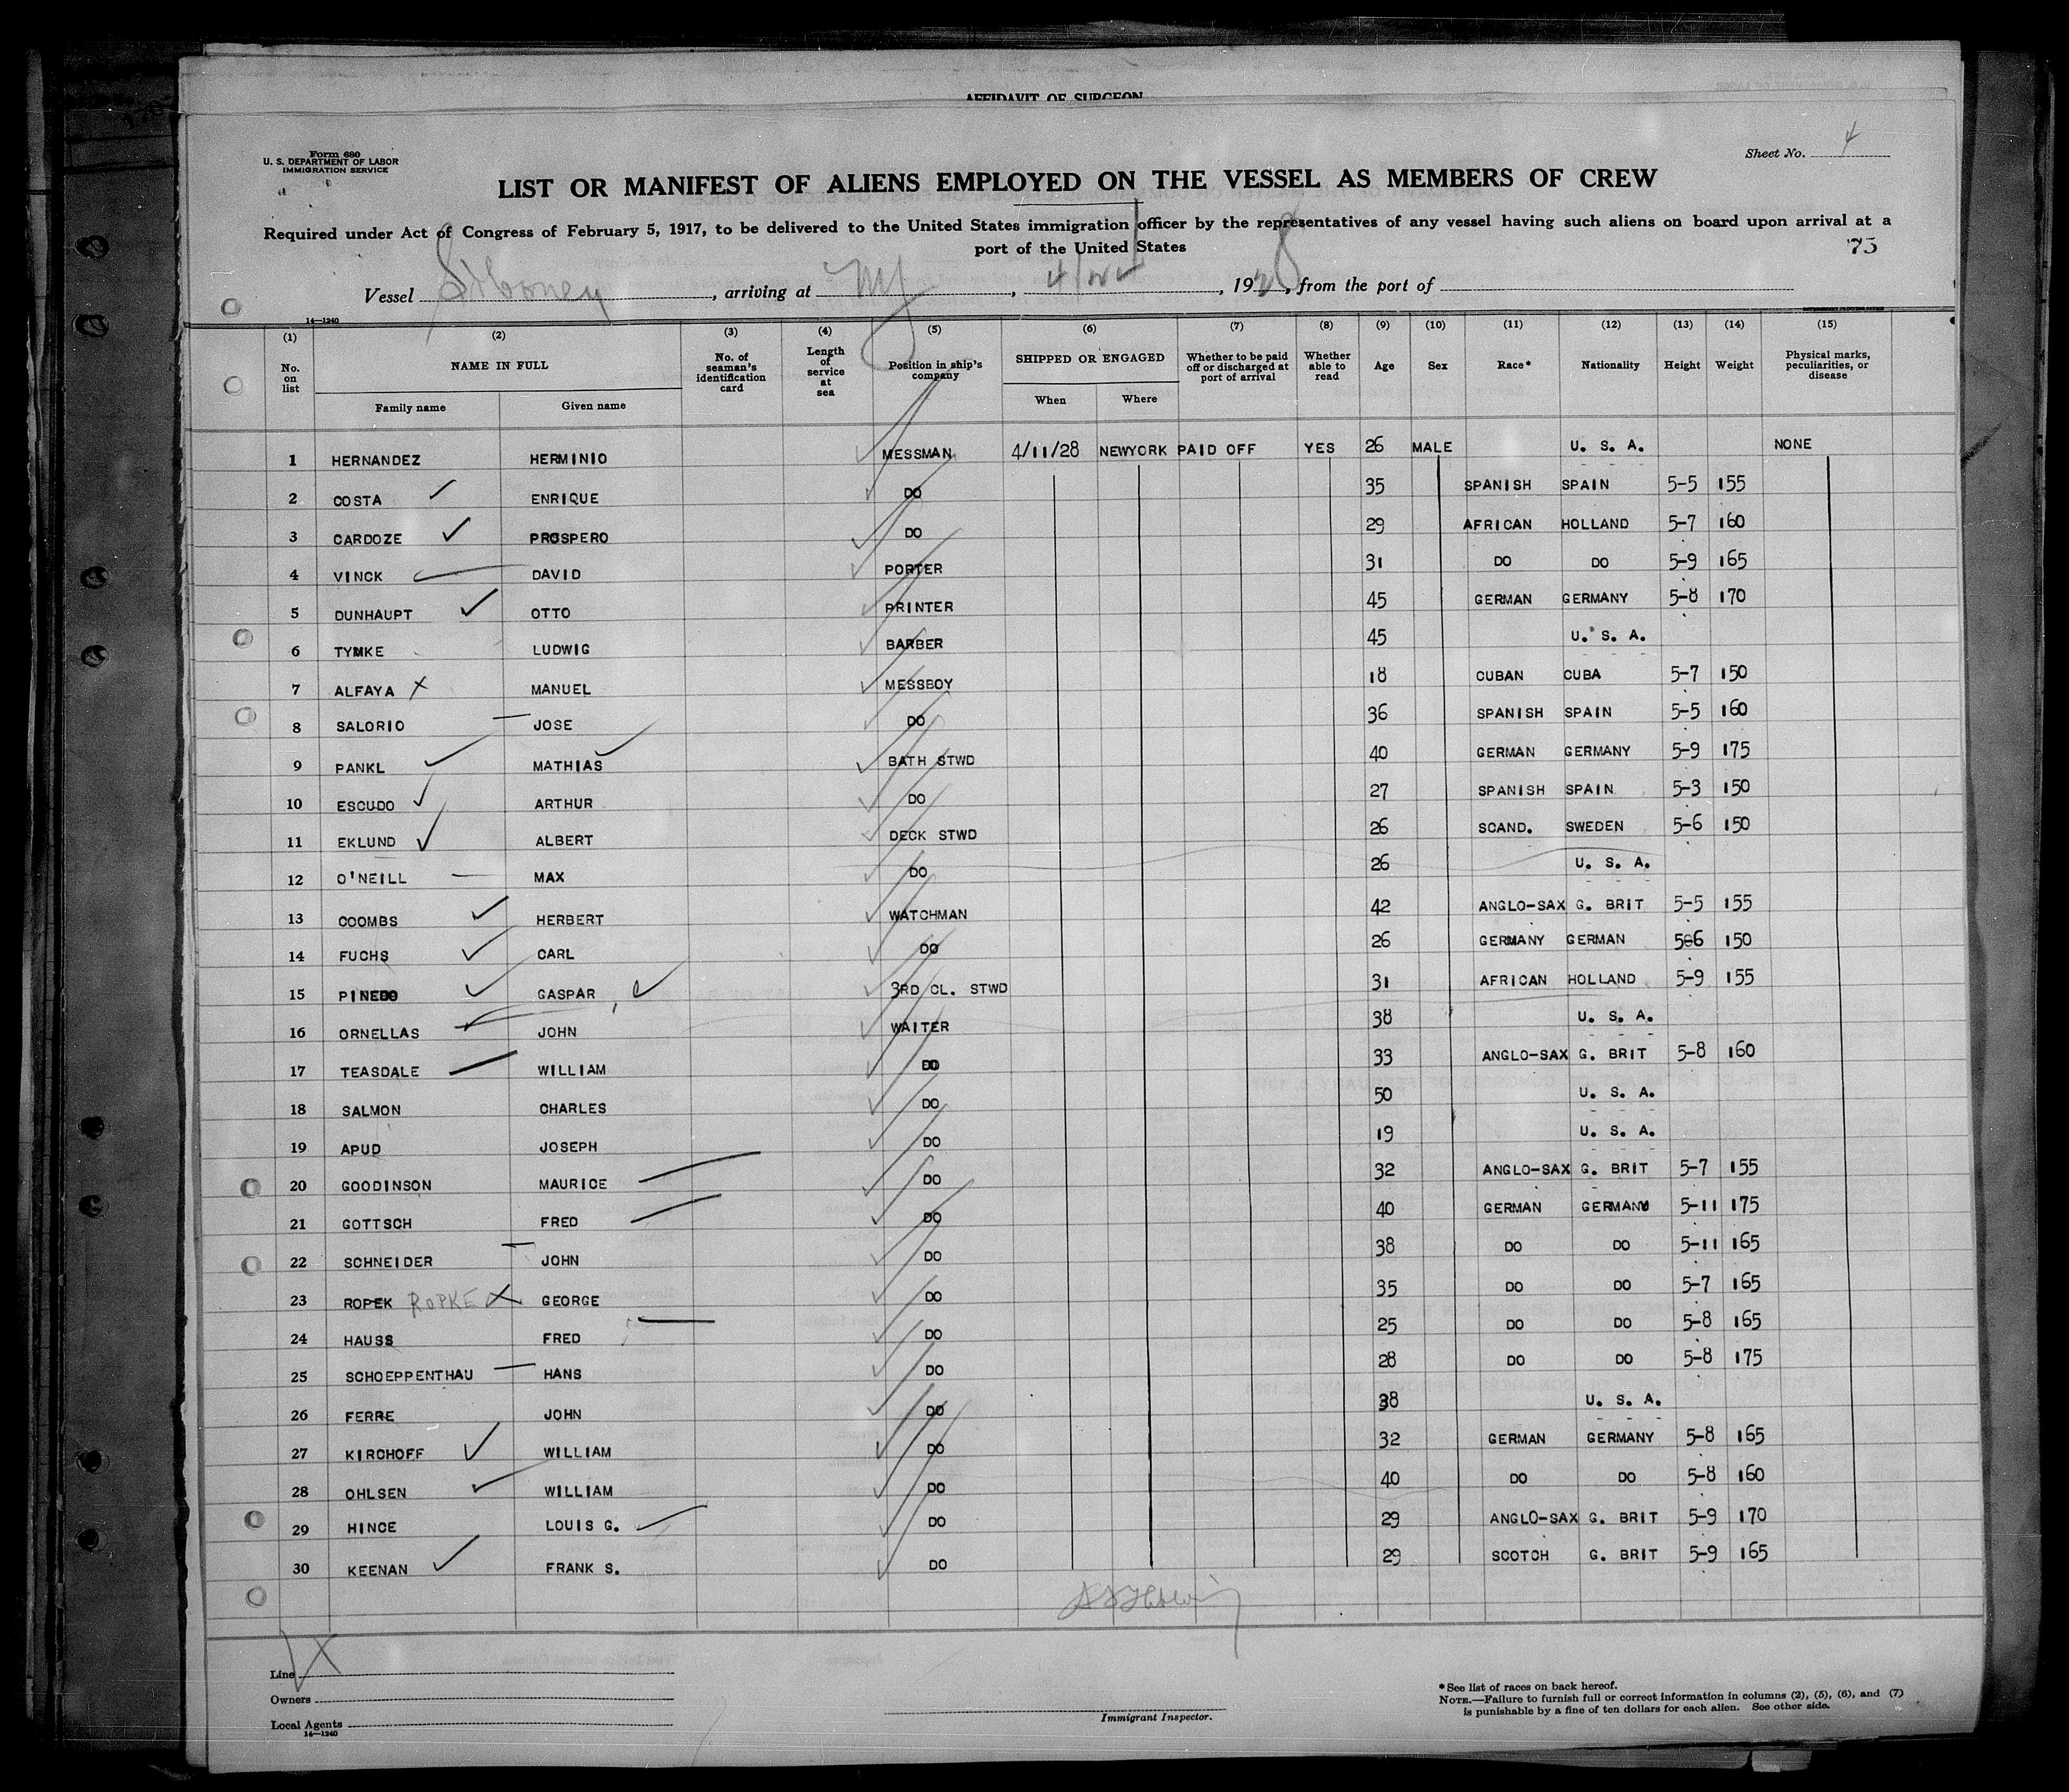 AFFIDAVIT OF SURGEON
Form 680
U. S. DEPARTMENT OF LABOR
IMMIGRATION SERVICE
Sheet No. 4
LIST OR MANIFEST OF ALIENS EMPLOYED ON THE VESSEL AS MEMBERS OF CREW
Required under Act of Congress of February 5, 1917, to be delivered to the United States immigration officer by the representatives of any vessel having such aliens on board upon arrival at a
port of the United States
75
Vessel Siboney, arriving at NY, 1928, from the port of
14—1240
(1) (2) (3) (4) (5) (6) (7) (8) (9) (10) (11) (12) (13) (14) (15)
No. on list NAME IN FULL Family name Given name No. of seaman's identification card Length of service at sea Position in ship's company SHIPPED OR ENGAGED When Where Whether to be paid off or discharged at port of arrival Whether able to read Age Sex Race* Nationality Height Weight Physical marks, peculiarities, or disease
1 HERNANDEZ HERMINIO MESSMAN 4/11/28 NEWYORK PAID OFF YES 26 MALE U. S. A. NONE
2 COSTA ENRIQUE DO 35 SPANISH SPAIN 5-5 155
3 CARDOZE PROSPERO DO 29 AFRICAN HOLLAND 5-7 160
4 VINCK DAVID PORTER 31 DO DO 5-9 165
5 DUNHAUPT OTTO PRINTER 45 GERMAN GERMANY 5-8 170
6 TYMKE LUDWIG BARBER 45 U. S. A.
7 ALFAYA MANUEL MESSBOY 18 CUBAN CUBA 5-7 150
8 SALORIO JOSE DO 36 SPANISH SPAIN 5-5 160
9 PANKL MATHIAS BATH STWD 40 GERMAN GERMANY 5-9 175
10 ESCUDO ARTHUR DO 27 SPANISH SPAIN 5-3 150
11 EKLUND ALBERT DECK STWD 26 SCAND. SWEDEN 5-6 150
12 O'NEILL MAX DO 26 U. S. A.
13 COOMBS HERBERT WATCHMAN 42 ANGLO-SAX G. BRIT 5-5 155
14 FUCHS CARL DO 26 GERMANY GERMAN 506 150
15 PINEDO GASPAR 3RD CL. STWD 31 AFRICAN HOLLAND 5-9 155
16 ORNELLAS JOHN WAITER 38 U. S. A.
17 TEASDALE WILLIAM DO 33 ANGLO-SAX G. BRIT 5-8 160
18 SALMON CHARLES DO 50 U. S. A.
19 APUD JOSEPH DO 19 U. S. A.
20 GOODINSON MAURICE DO 32 ANGLO-SAX G. BRIT 5-7 155
21 GOTTSCH FRED DO 40 GERMAN GERMANY 5-11 175
22 SCHNEIDER JOHN DO 38 DO DO 5-11 165
23 ROPEK ROPKE GEORGE DO 35 DO DO 5-7 165
24 HAUSS FRED DO 25 DO DO 5-8 165
25 SCHOEPPENTHAU HANS DO 28 DO DO 5-8 175
26 FERRE JOHN DO 38 U. S. A.
27 KIRCHOFF WILLIAM DO 32 GERMAN GERMANY 5-8 165
28 OHLSEN WILLIAM DO 40 DO DO 5-8 160
29 HINCE LOUIS G. DO 29 ANGLO-SAX G. BRIT 5-9 170
30 KEENAN FRANK S. DO 29 SCOTCH G. BRIT 5-9 165
Line
Owners
Local Agents
14—1240
Immigrant Inspector.
*See list of races on back hereof.
NOTE.—Failure to furnish full or correct information in columns (2), (5), (6), and (7)
is punishable by a fine of ten dollars for each alien. See other side.